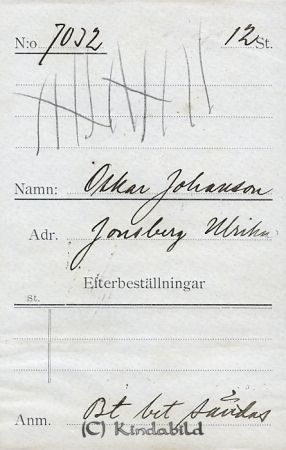 N:o 7032 12 St.
Namn: Oskar Johanson
Adr. Jonsberg Ulrika
Efterbeställningar
st.
Anm. Bt bet sändas
(C) Kindabild